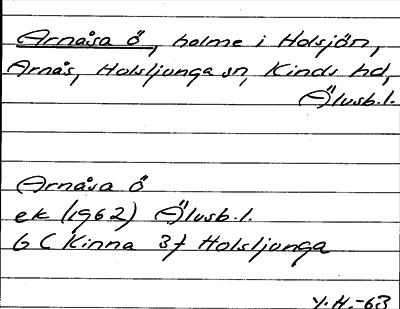 Arnåsa ö, holme i Holsjön,
Arnås, Holsljunga sn, Kinds hd,
Älvsb.l.
Arnåsa ö
ek (1962) Älvsb.l.
6 C Kinna 3f Holsljunga
Y.H.-63